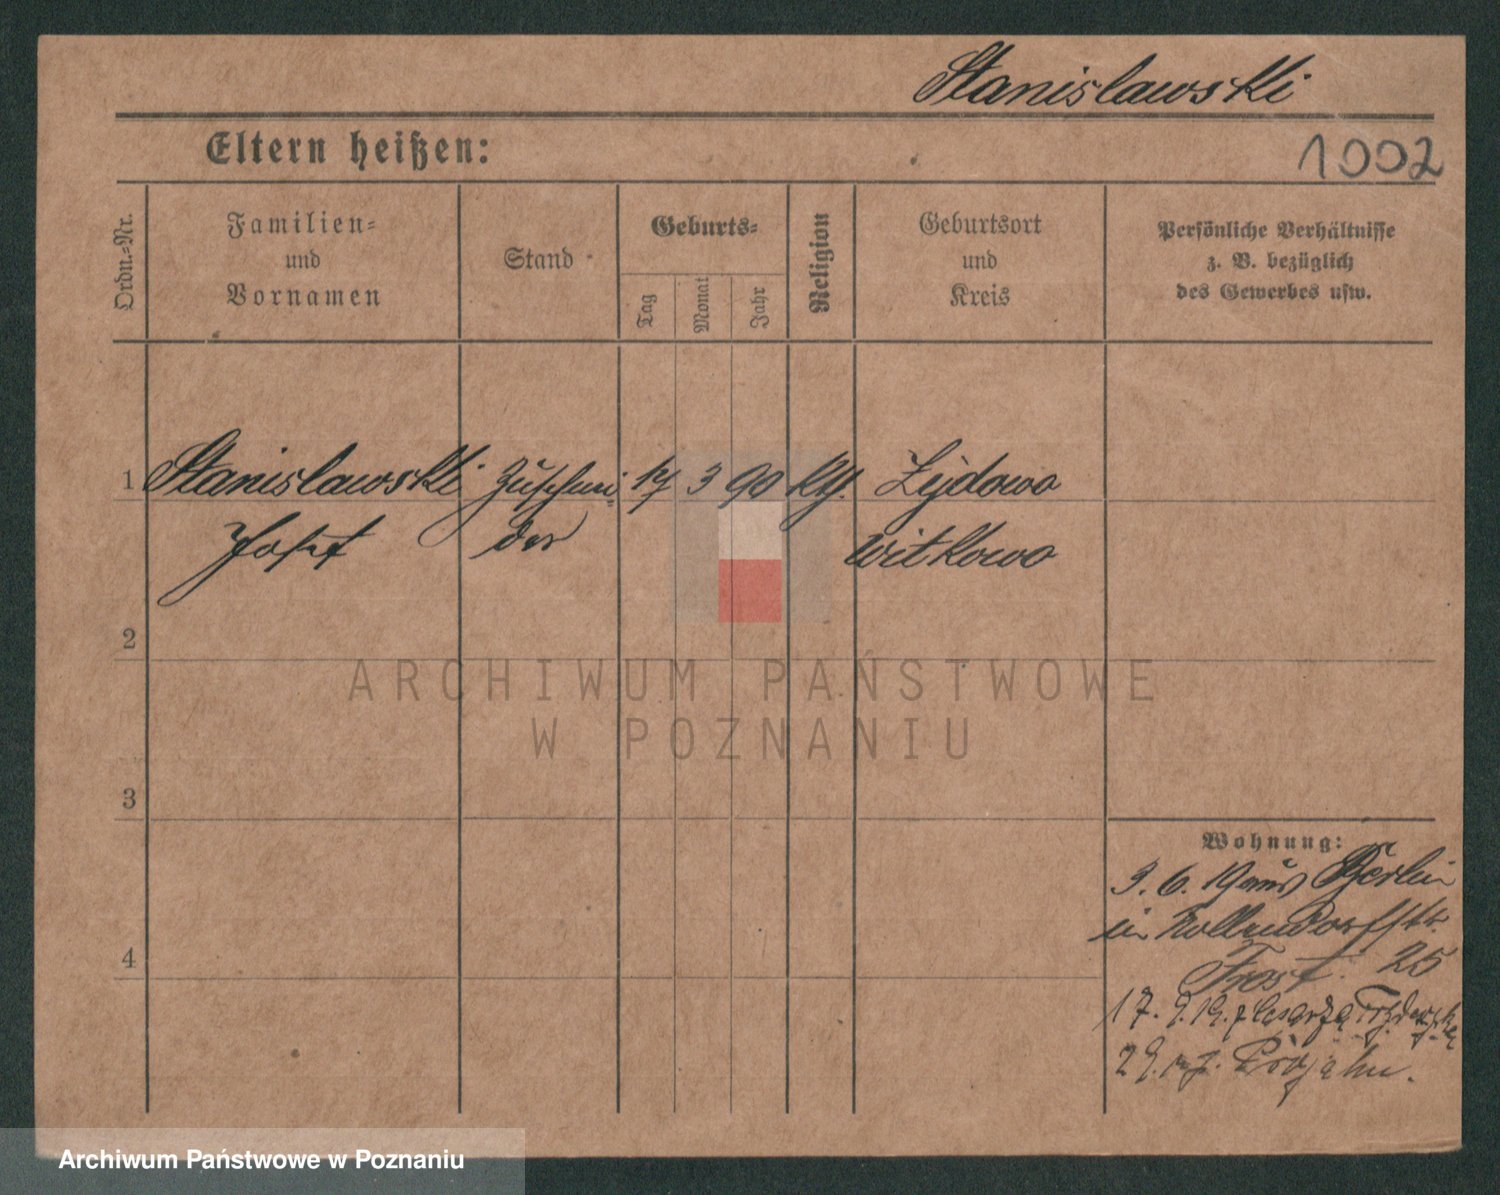 Stanislawski
Eltern heißen:
1002
Ordn.-Nr.
Familien-
und
Vornamen
Stand
Geburts-
Tag
Monat
Jahr
Religion
Geburtsort
und
Kreis
Persönliche Verhältnisse
z. B. bezüglich
des Gewerbes usw.
1
Stanislawski Zuschnei 17 3 90 kth. Zydowo
Josef der Witkowo
2
ARCHIWUM PAŃSTWOWE
W POZNANIU
3
Wohnung:
3. 6. 19 aus Berlin
in Nollendorfstr.
25
Frost.
17. 9. 19.
29.
4
Archiwum Państwowe w Poznaniu